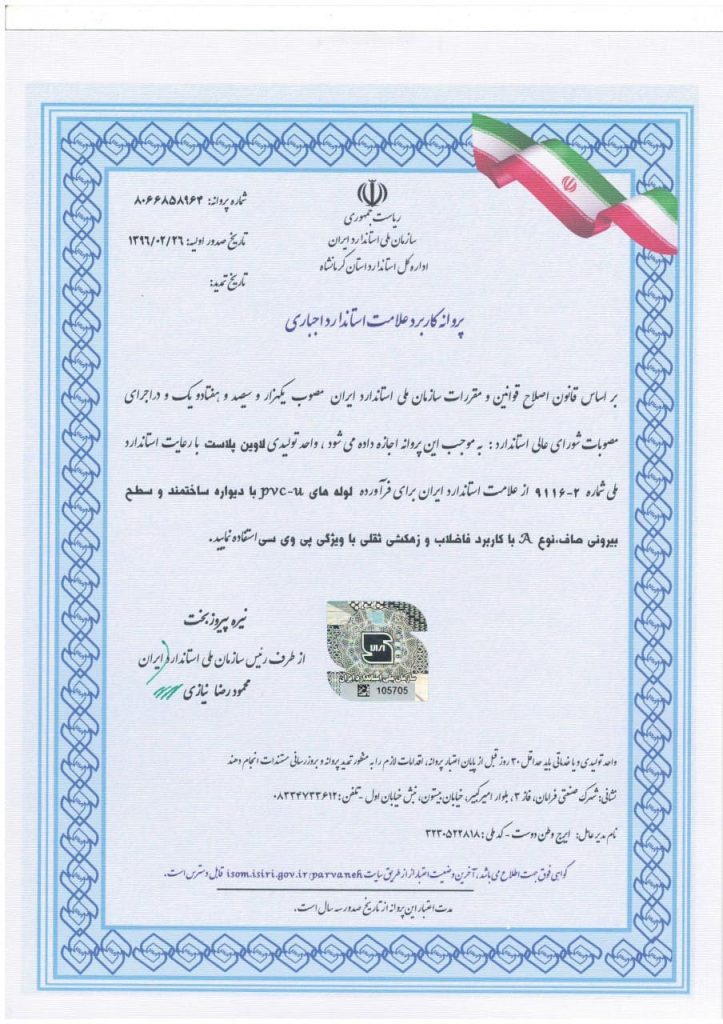 ریاست جمهوری
سازمان ملی استاندارد ایران
اداره کل استاندارد استان کرمانشاه
شماره پروانه: ۸۰۶۶۸۵۸۹۶۴
تاریخ صدور اولیه: ۱۳۹۶/۰۲/۲۶
تاریخ تمدید:
پروانه کاربرد علامت استاندارد اجباری
بر اساس قانون اصلاح قوانین و مقررات سازمان ملی استاندارد ایران مصوب یکهزار و سیصد و هفتاد و یک و در اجرای
مصوبات شورای عالی استاندارد : به موجب این پروانه اجازه داده می شود ، واحد تولیدی لاوین پلاست با رعایت استاندارد
ملی شماره ۲-۹۱۱۶ از علامت استاندارد ایران برای فرآورده لوله های pvc-u با دیواره ساختمند و سطح
بیرونی صاف،نوع A با کاربرد فاضلاب و زهکشی ثقلی با ویژگی پی وی سی استفاده نمایید.
نیره پیروزبخت
از طرف رئیس سازمان ملی استاندارد ایران
محمود رضا نیازی
سازمان ملی استاندارد ایران
105705
واحد تولیدی و یا خدماتی باید حداقل ۳۰ روز قبل از پایان اعتبار پروانه، اقدامات لازم را به منظور تمدید پروانه و بروزرسانی مستندات انجام دهند
نشانی: شهرک صنعتی فرامان، فاز ۳، بلوار امیرکبیر، خیابان بیستون، نبش خیابان اول -تلفن: ۰۸۳۳۴۷۳۳۶۱۲
نام مدیر عامل: ایرج وطن دوست - کد ملی: ۳۲۳۰۵۲۲۸۱۸
گواهی فوق جهت اطلاع می باشد، آخرین وضعیت اعتبار از از طریق سایت isom.isiri.gov.ir/parvaneh قابل دسترس است.
مدت اعتبار این پروانه از تاریخ صدور سه سال است.